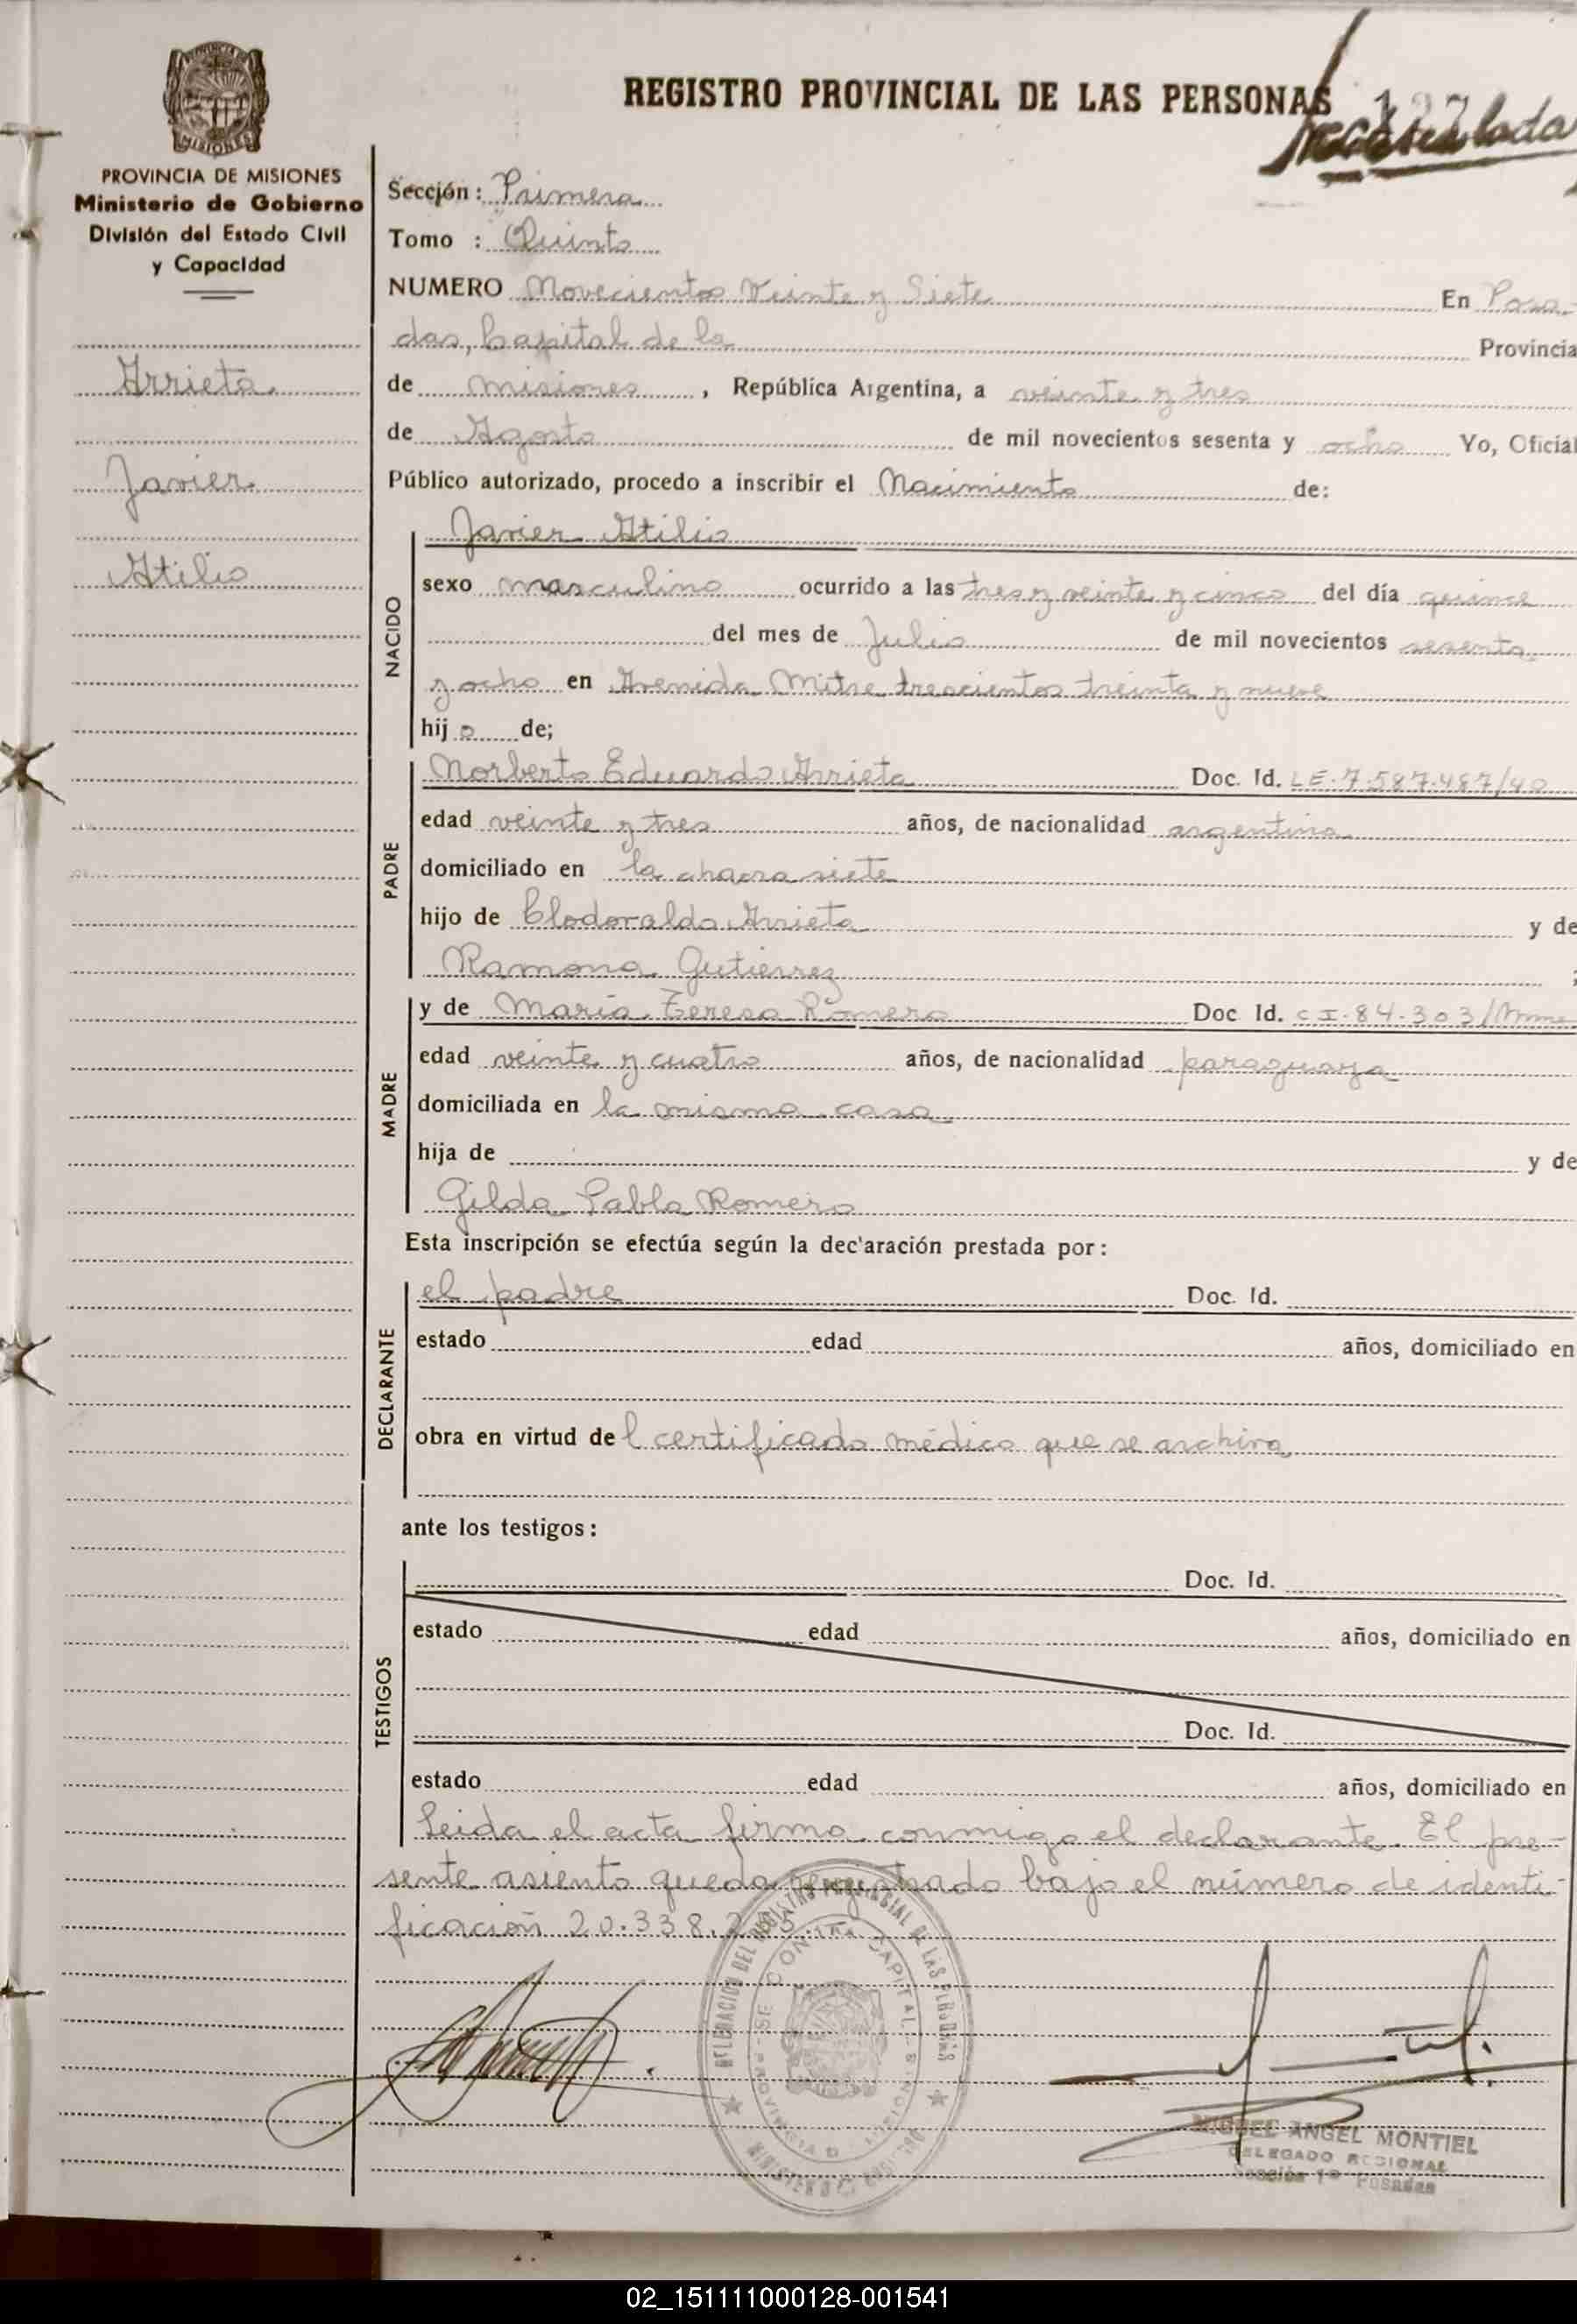 REGISTRO PROVINCIAL DE LAS PERSONAS
PROVINCIA DE MISIONES
Ministerio de Gobierno
División del Estado Civil
y Capacidad
Arrieta
Javier
Atilio
Sección: Primera
Tomo : Quinto
NUMERO Novecientos Veinte y Siete En Posa-
das, Capital de la Provincia
de Misiones, República Argentina, a veinte y tres
de Agosto de mil novecientos sesenta y ocho Yo, Oficial
Público autorizado, procedo a inscribir el Nacimiento de:
NACIDO
Javier Atilio
sexo masculino ocurrido a las tres y veinte y cinco del día quince
del mes de Julio de mil novecientos sesenta
y ocho en Avenida Mitre trescientos treinta y nueve
hijo de;
PADRE
Norberto Eduardo Arrieta Doc. Id. LE.7.587.487/40
edad veinte y tres años, de nacionalidad argentina
domiciliado en la chacra siete
hijo de Clodoraldo Arrieta y de
Ramona Gutierrez ;
MADRE
y de María Teresa Romero Doc Id. C.I.84.303/
edad veinte y cuatro años, de nacionalidad paraguaya
domiciliada en la misma casa
hija de y de
Gilda Pabla Romero
Esta inscripción se efectúa según la dec'aración prestada por:
DECLARANTE
el padre Doc. Id.
estado edad años, domiciliado en
obra en virtud del certificado médico que se archiva
ante los testigos:
TESTIGOS
Doc. Id.
estado edad años, domiciliado en
Doc. Id.
estado edad años, domiciliado en
Leida el acta firma conmigo el declarante. El pre-
sente asiento queda registrado bajo el número de identi-
ficación 20.338.
MIGUEL ANGEL MONTIEL
DELEGADO REGIONAL
Sección 1ª Posadas
02_151111000128-001541